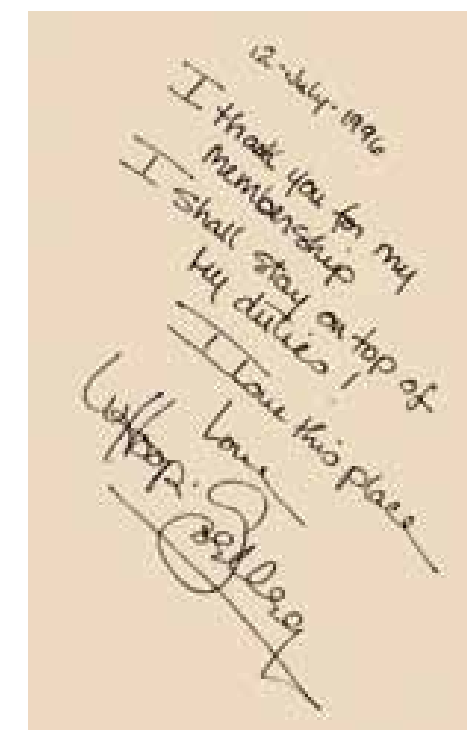 12 · July · 1996
I thank you for my
membership
I shall stay on top of
my duties!
I Love this place
Love
Whoopi Goldberg